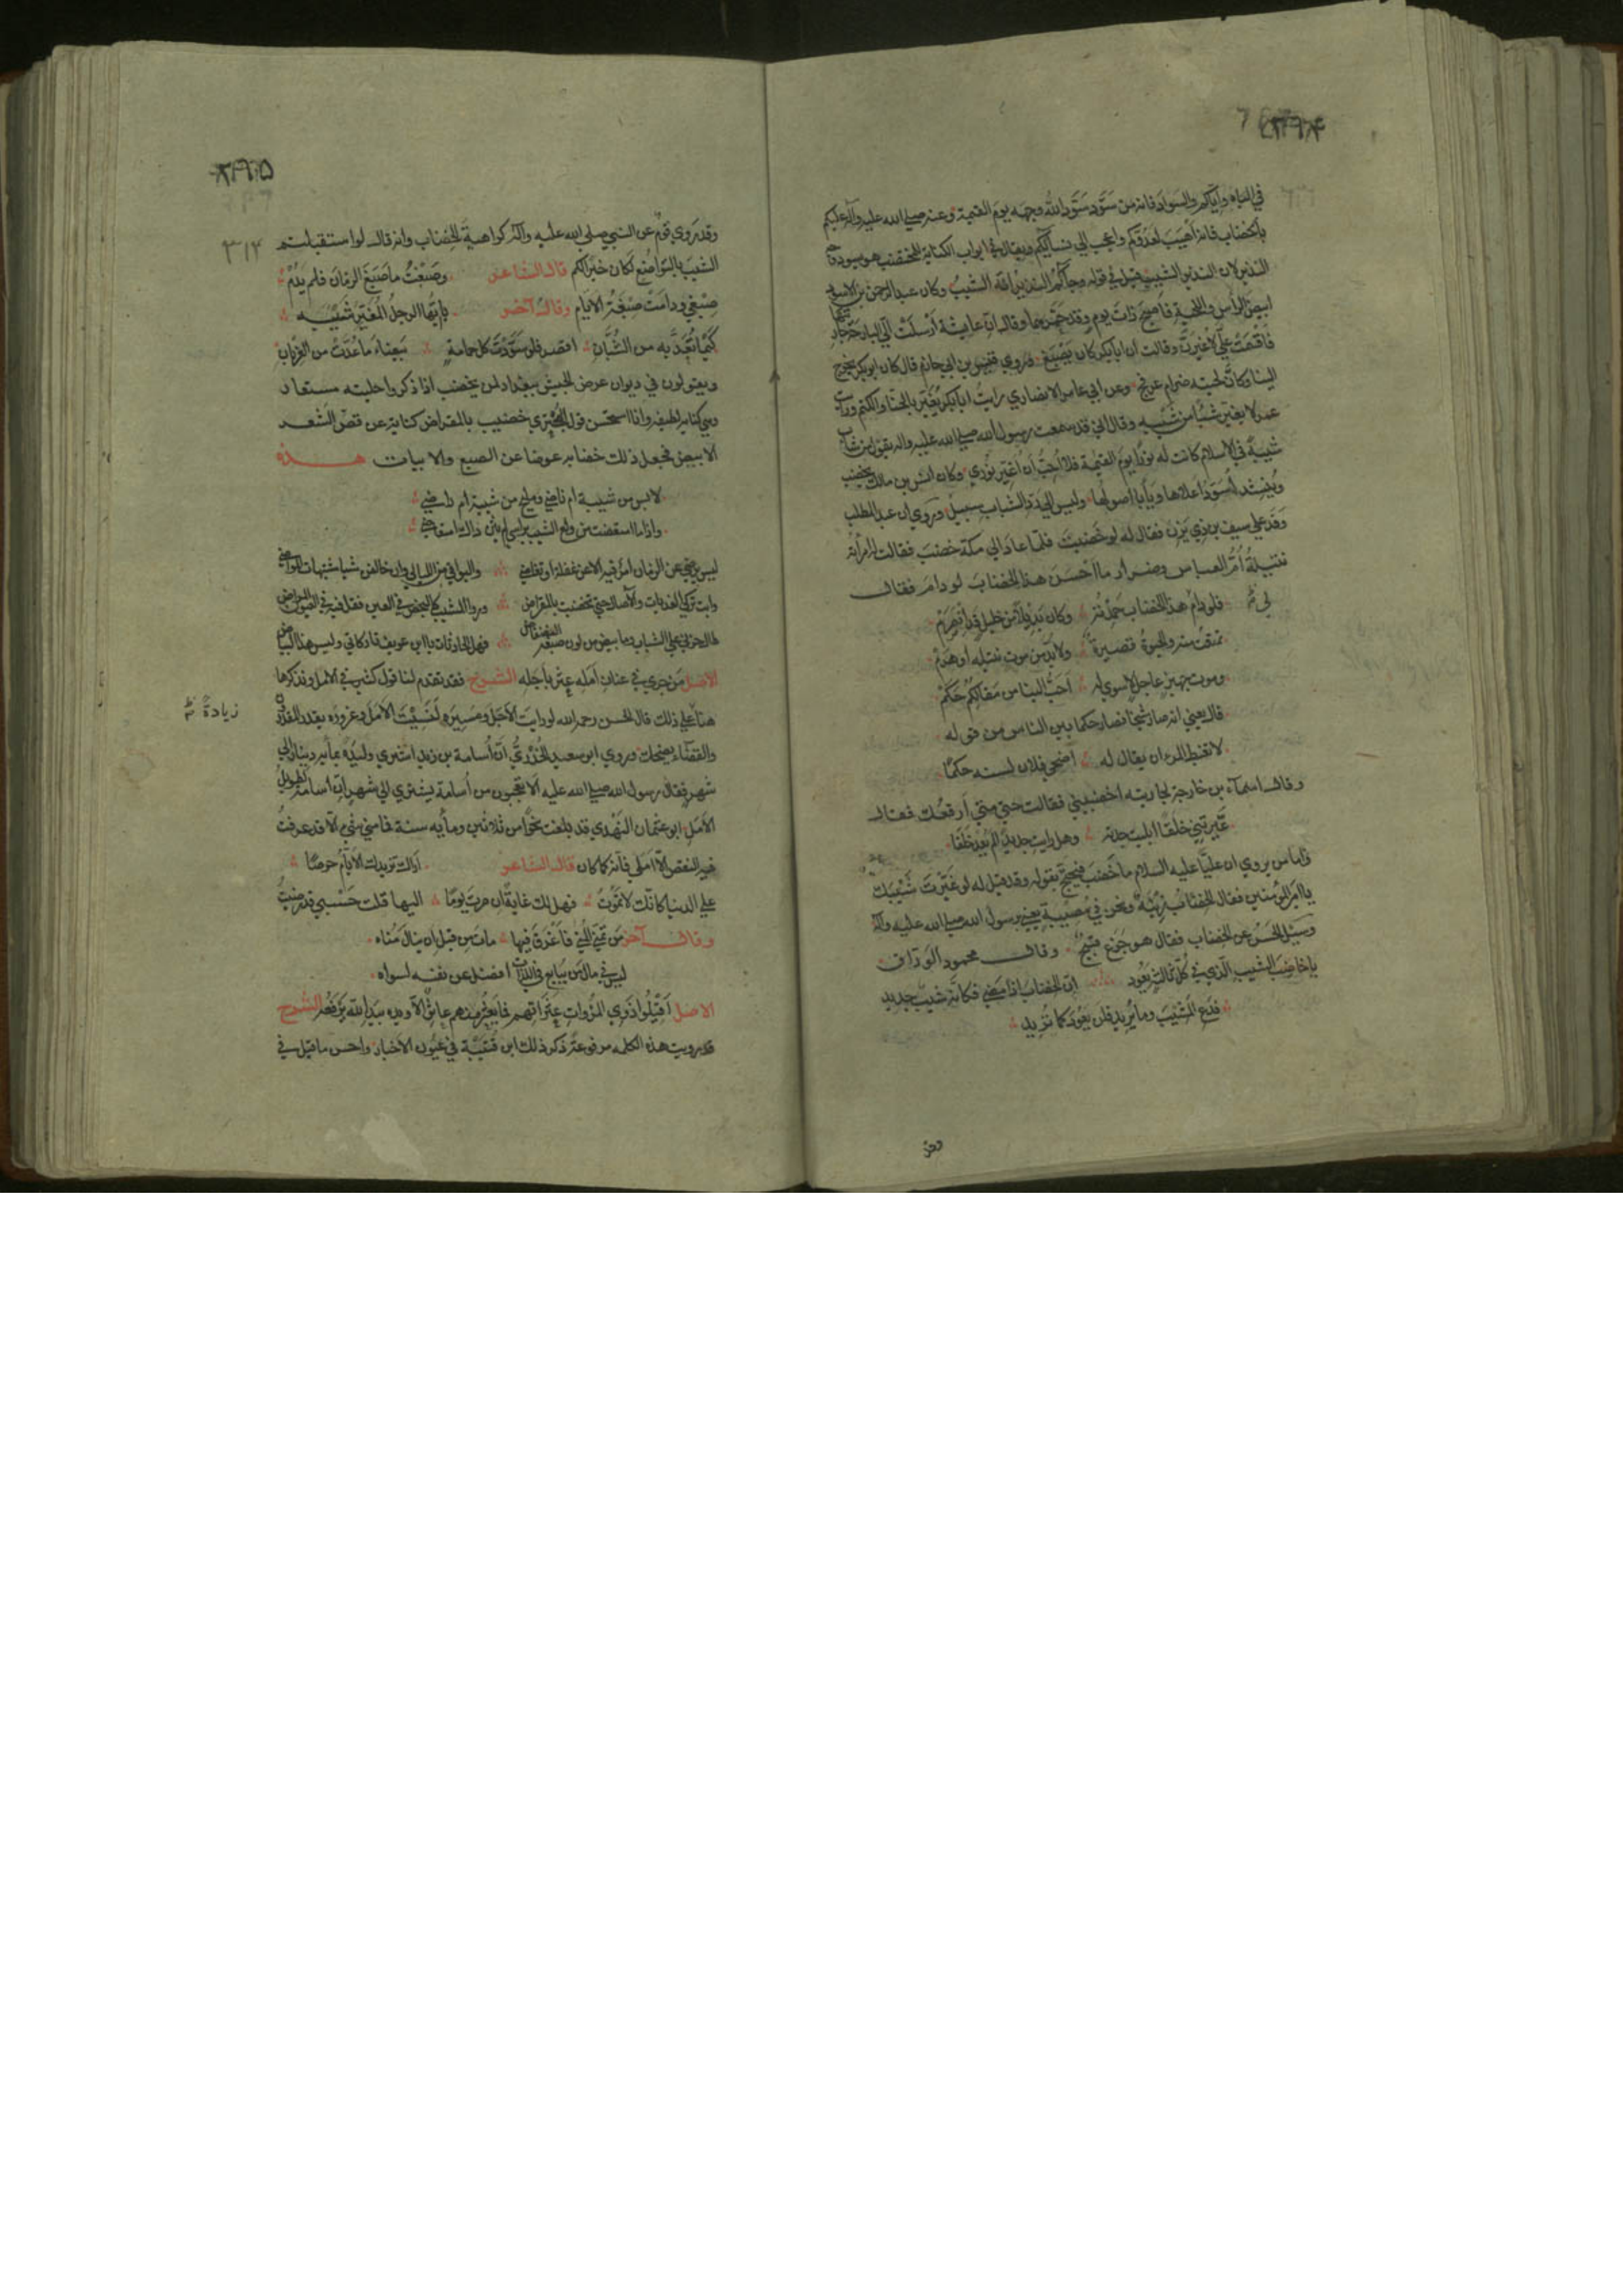 في الباه وايّاكم والسواد فانه من سَوَّد سَوَّد الله وجهه يوم القيمة وعنه صلى الله عليه وآله عليكم
بالخضاب فانه اهيب لعدوّكم واعجب الى نسائكم ويقال في ابواب الكناية للمختضب هو يسود وجه
النذير لان النذير الشيب قيل في قوله وجاءكم النذير انه الشيب وكان عبد الرحمن بن الاسود
ابيض الرأس واللحية فاصبح ذات يوم وقد حمّرهما وقال انّ عايشة أرسلت اليّ البارحة جاريتها
فأقسمت عليّ لاغيّرنّ وقالت ان ابا بكر كان يصبغ وروي قيس بن ابي حازم قال كان ابو بكر يخرج
الينا وكأنّ لحيته ضرام عرفج وعن ابي عامر الانصاري رايت ابا بكر يغيّر بالحنّا والكتم ورايت
عمر لا يغيّر شيئًا من شيبه وقال اني قد سمعت رسول الله صلى الله عليه واله يقول من شاب
شيبة في الاسلام كانت له نورًا يوم القيمة فلا أحبّ أن أغيّر نوري وكان انس بن مالك يخضب
وينشد نُسَوّد أعلاها ويأبا اصولها وليس الى ردّ الشباب سبيل وروي ان عبد المطلب
وفد على سيف بن ذي يزن فقال له لو خضبت فلمّا عاد الى مكة خضب فقالت له امرأته
نتيلة أمّ العباس وضرار ما أحسن هذا الخضاب لو دام فقال
فلو دام هذا الخضاب حمدته وكان بديلا من خليل قد انصرم
تمتعت منه والحيوة قصيرة ولا بدّ من موت نتيلة أو هرم
وموت جهيز عاجل لا سوى له أحبّ الينا من مقالكم حكم
قال يعني انه صار شيخا فصار حكما بين الناس من قوله
لا تغبط المرء ان يقال له أضحى فلان لسنه حكمًا
وقال اسماء بن خارجة لجاريته اخضبيني فقالت حتى متى أرقعك فقال
عيّرتني خلقا ابليت جدته وهل رايت جديدًا لم يعد خلقا
وامّا من يروي ان عليّا عليه السلام ما خضب فيحتجّ بقوله وقد قيل له لو غيّرت شيبك
يا امير المؤمنين فقال الخضاب زينة ونحن في مصيبة يعني برسول الله صلى الله عليه وآله
وسئل الحسن عن الخضاب فقال هو جزع قبيح وقال محمود الورّاق
يا خاضب الشيب الّذي في كل ثالثة يعود انّ الخضاب اذا مضى فكأنه شيب جديد
فدع المشيب وما يريد فلن يعود كما تريد
وقد روى قوم عن النبي صلى الله عليه وآله كراهية الخضاب وانه قال لو استقبلتم
الشيب بالتواضع لكان خيرا لكم قال الشاعر وصبغت ما صبغ الزمان فلم يدم
صبغي ودامت صبغة الايام وقال آخر يا ايّها الرجل المغيّر شيبه
كيما تعدّ به من الشبّان اقصر فلو سوّدت كل حمامة بيضاء ما عدّت من الغربان
ويقولون في ديوان عرض الجيش ببغداد لمن يخضب اذا ذكروا حليته مستعار
وهي كناية لطيفة وانا استحسن قول البحتري خضيب بالمقراض كناية عن قصّ الشعر
الابيض فجعل ذلك خضابه عوضا عن الصبغ والابيات هذه
لابس من شبيبة ام ناضي ومليح من شيبة ام راضي
ليس يرضى عن الزمان امرؤ فيه الا عن غفلة او تغاضي والبواقي من الليالي وان خالفن شيئا شبيهات المواضي
الاصل من جرى في عنان أمله عثر بأجله الشرح قد تقدم لنا قول كثير في الامل ونذكر ها
هنا على ذلك قال الحسن رحمه الله لو رايت الأجل ومسيره لنسيت الأمل وغروره يقدر المقدّرون
والقضاء يضحك وروي ابو سعيد الخدريّ انّ أسامة بن زيد اشترى وليدة بمأية دينار الى
شهر فقال رسول الله صلى الله عليه ألا تعجبون من أسامة يشتري الى شهر ان أسامة لطويل
الأمل ابو عثمان النهدي قد بلغت نحوا من ثلاثين ومأية سنة فما من شيء الا قد عرفت
فيه النقص الا املي فانه كما كان قال الشاعر أراك تزيدك الأيّام حرصًا
على الدنيا كأنّك لا تموت فهل لك غاية ان صرت يومًا اليها قلت حسبي قد رضيت
وقال آخر من تمنّى المنى فأغرق فيها مات من قبل ان ينال مناه
ليس في مال من يتابع في اللذّات افضل عن نفسه لسواه
الاصل أقيلوا ذوي المروآت عثراتهم فما يعثر منهم عاثر الّا ويده بيد الله يرفعه الشرح
قد رويت هذه الكلمة مرفوعة ذكر ذلك ابن قتيبة في عيون الأخبار واحسن ما قيل في
زيادة
وقد
٣١٢